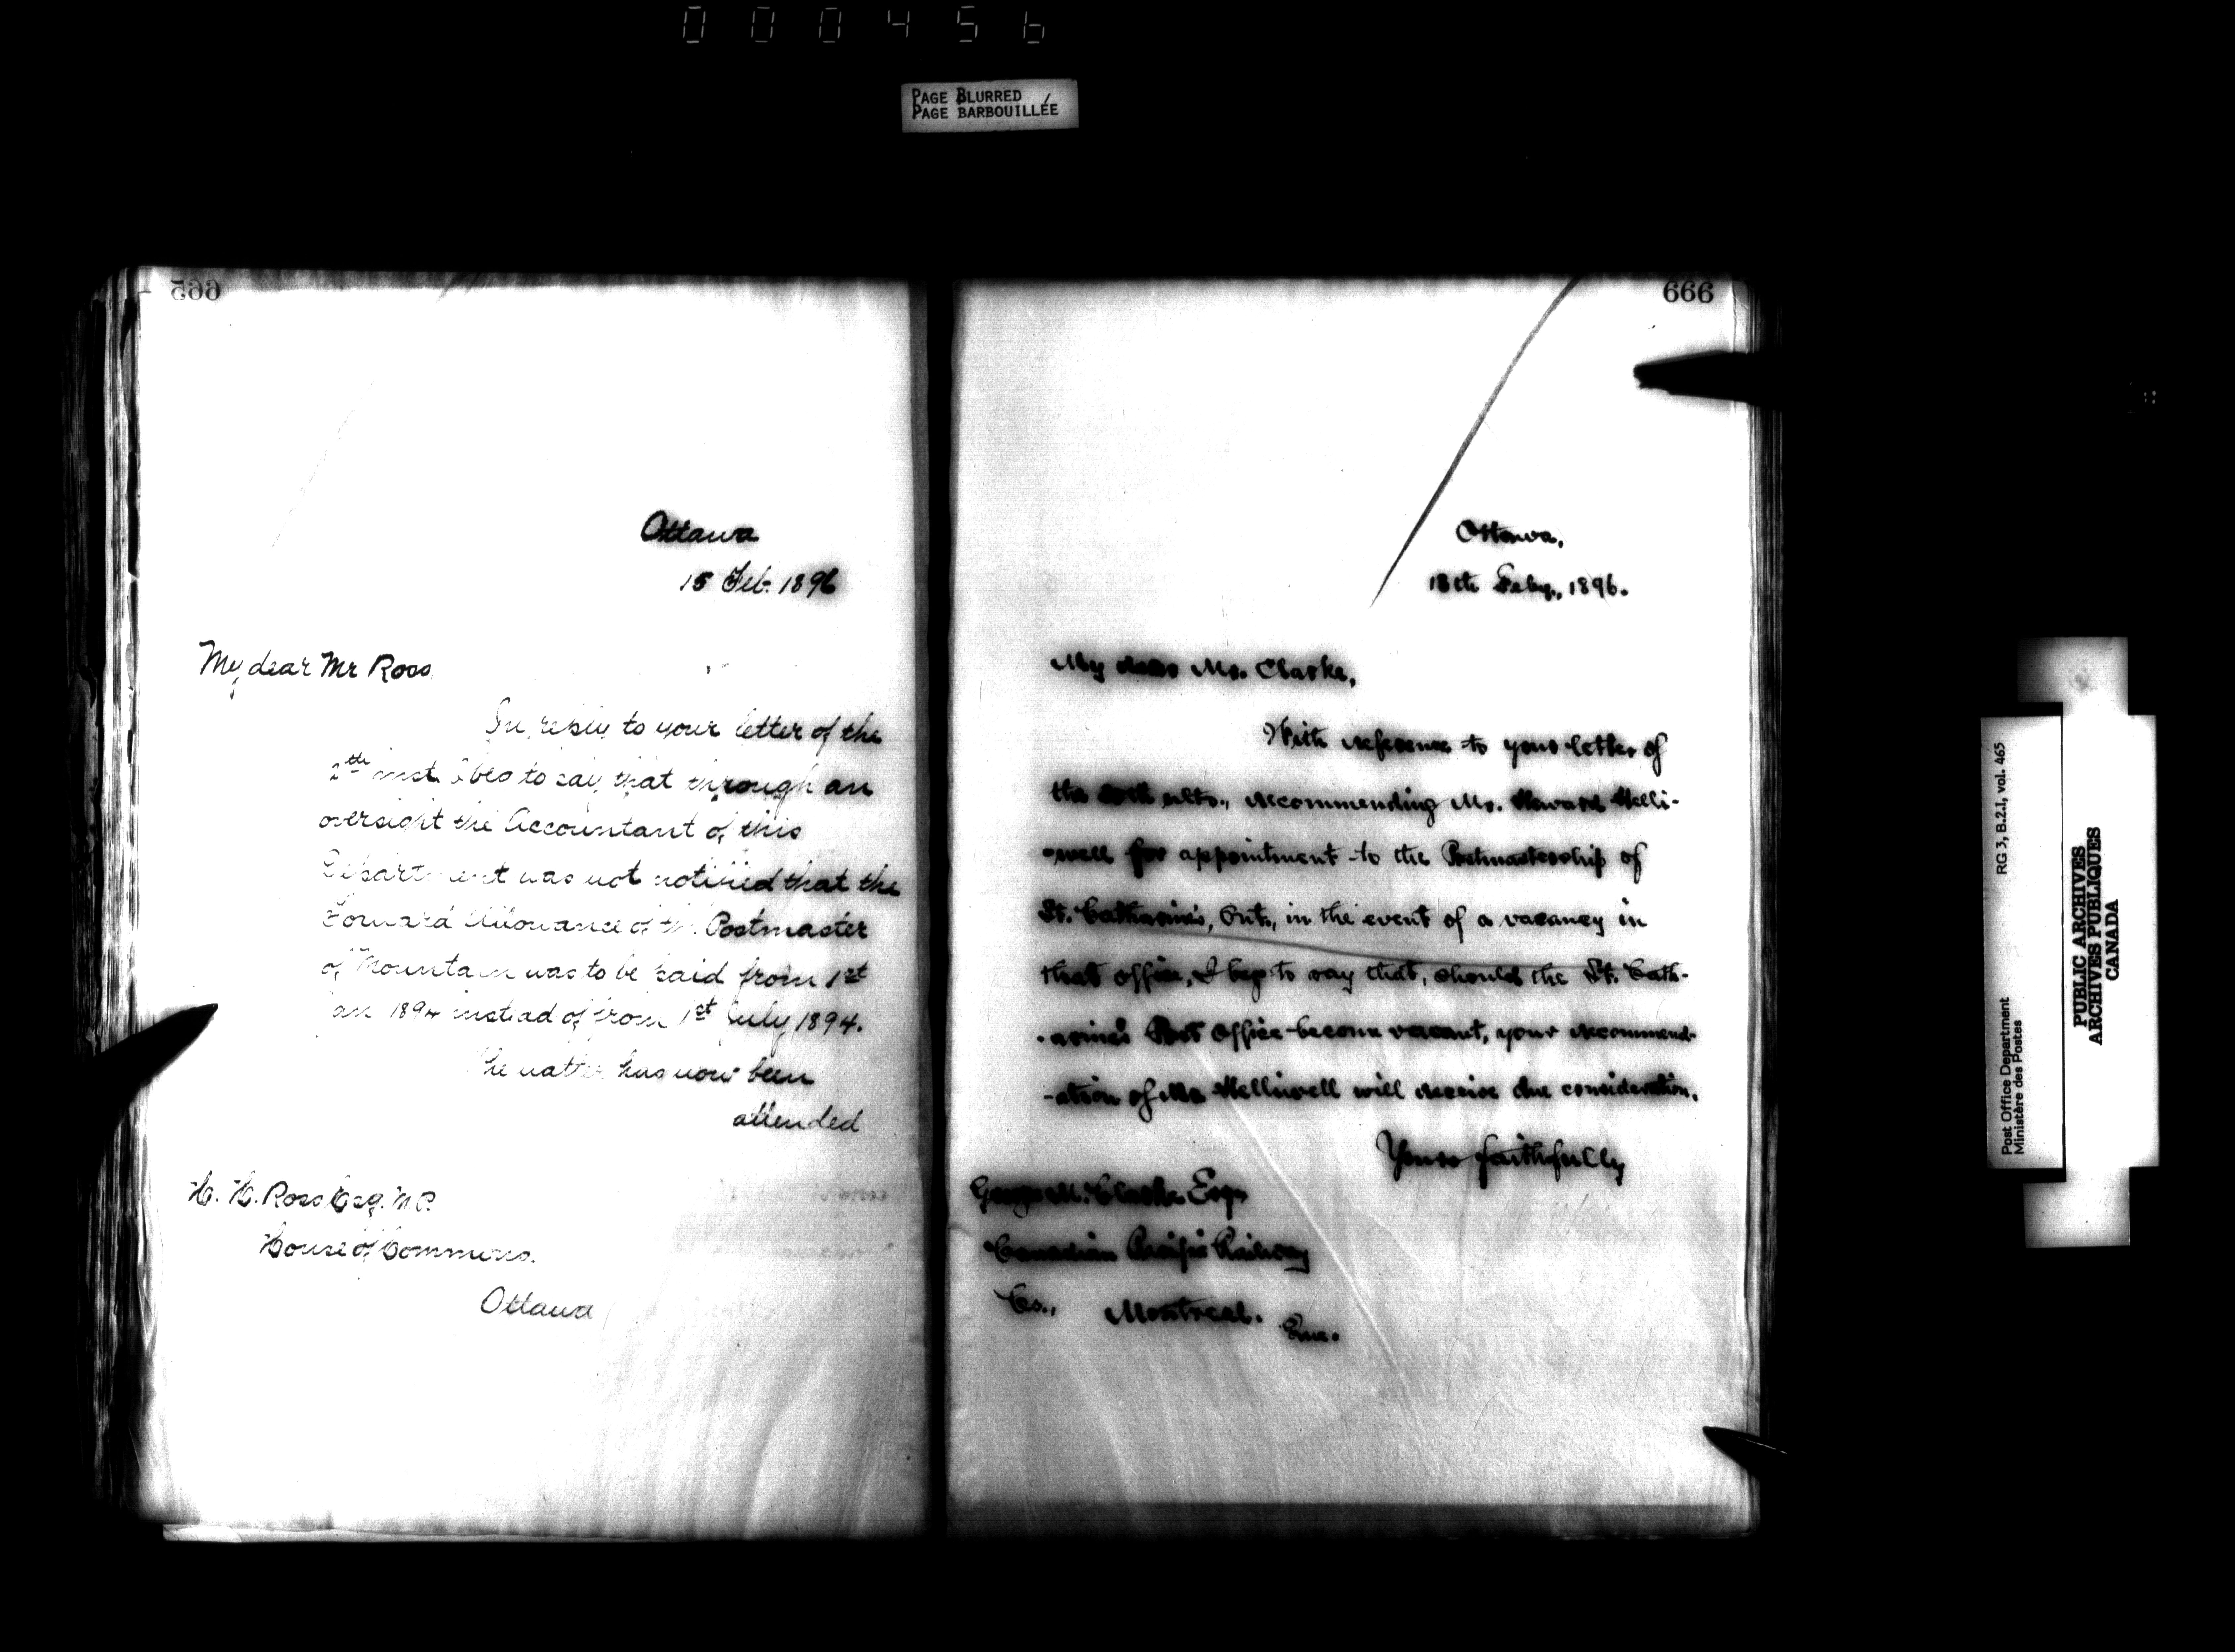 000456
PAGE BLURRED
PAGE BARBOUILLÉE
665
Ottawa
15 Feb. 1896
My dear Mr Ross
In reply to your letter of the
inst. I beg to say that through an
oversight the Accountant of this
Department was not notified that the
Forward Allowance of the Postmaster
of Mountain was to be paid from 1st
Jan 1894 instead of from 1st July 1894.
The matter has now been
attended
H. H. Ross Esq. M.P.
House of Commons.
Ottawa
666
Ottawa,
18th Feby., 1896.
My dear Mr. Clarke,
With reference to your letter of
the ulto., recommending Mr. Howard Helli-
-well for appointment to the Postmastership of
St. Catharines, Ont., in the event of a vacancy in
that office, I beg to say that, should the St. Cath-
-arines Post Office become vacant, your recommend-
-ation of Mr Helliwell will receive due consideration.
Yours faithfully
George M. Clarke Esq.
Canadian Pacific Railway
Co., Montreal. Que.
Post Office Department
Ministère des Postes
RG 3, B.2.I, vol. 465
PUBLIC ARCHIVES
ARCHIVES PUBLIQUES
CANADA